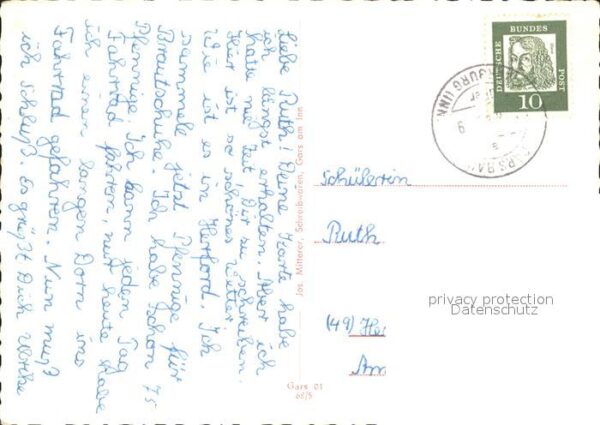 Liebe Ruth! Deine Karte habe
ich längst erhalten. Aber ich
hatte nie Zeit, Dir zu schreiben.
Hier ist so schönes Wetter.
Wie ist es in Herford. Ich
sammele jetzt Pfennige für
Brautschuhe. Ich habe schon 75
Pfennige. Ich kann jeden Tag
Fahrrad fahren, nur heute habe
ich einen langen Dorn ins
Fahrrad gefahren. Nun muß
ich schluß. Es grüßt Dich Ulrike
Jos. Mitterer, Schreibwaren, Gars am Inn
Gars 01
68/5
DEUTSCHE BUNDES POST
10
Schülerin
Ruth
(49) He
Am
privacy protection
Datenschutz